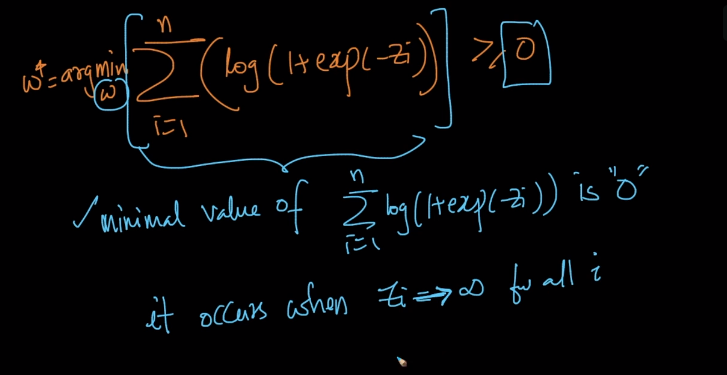 w* = argmin_w [ n∑i=1 (log(1+exp(-zi)) ] ≥ 0
✓ minimal value of n∑i=1 log(1+exp(-zi)) is "0"
it occurs when zi → ∞ for all i